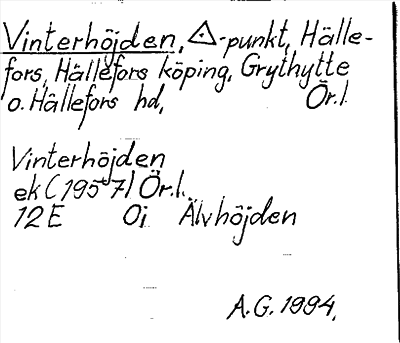 Vinterhöjden, △-punkt, Hälle-
fors, Hällefors köping, Grythytte
o. Hällefors hd, Ör.l.
Vinterhöjden
ek (1957) Ör.l.
12E 0i Älvhöjden
A.G. 1994.